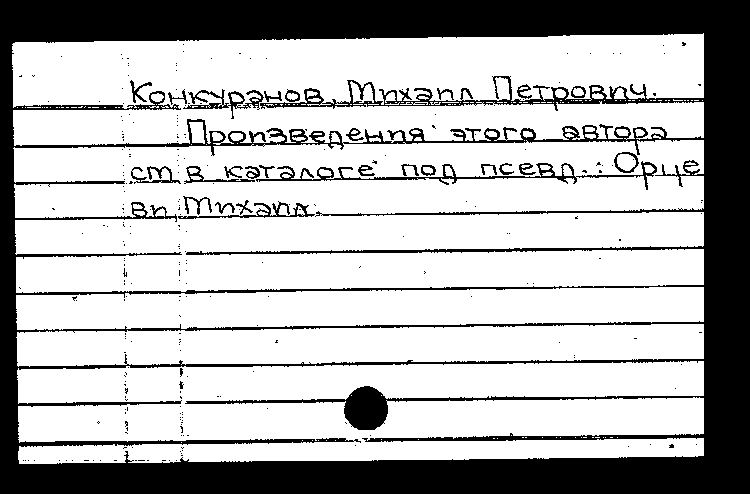 Конкуранов, Михаил Петрович.
Произведения этого автора
см в каталоге под псевд.: Орце
ви, Михаил.